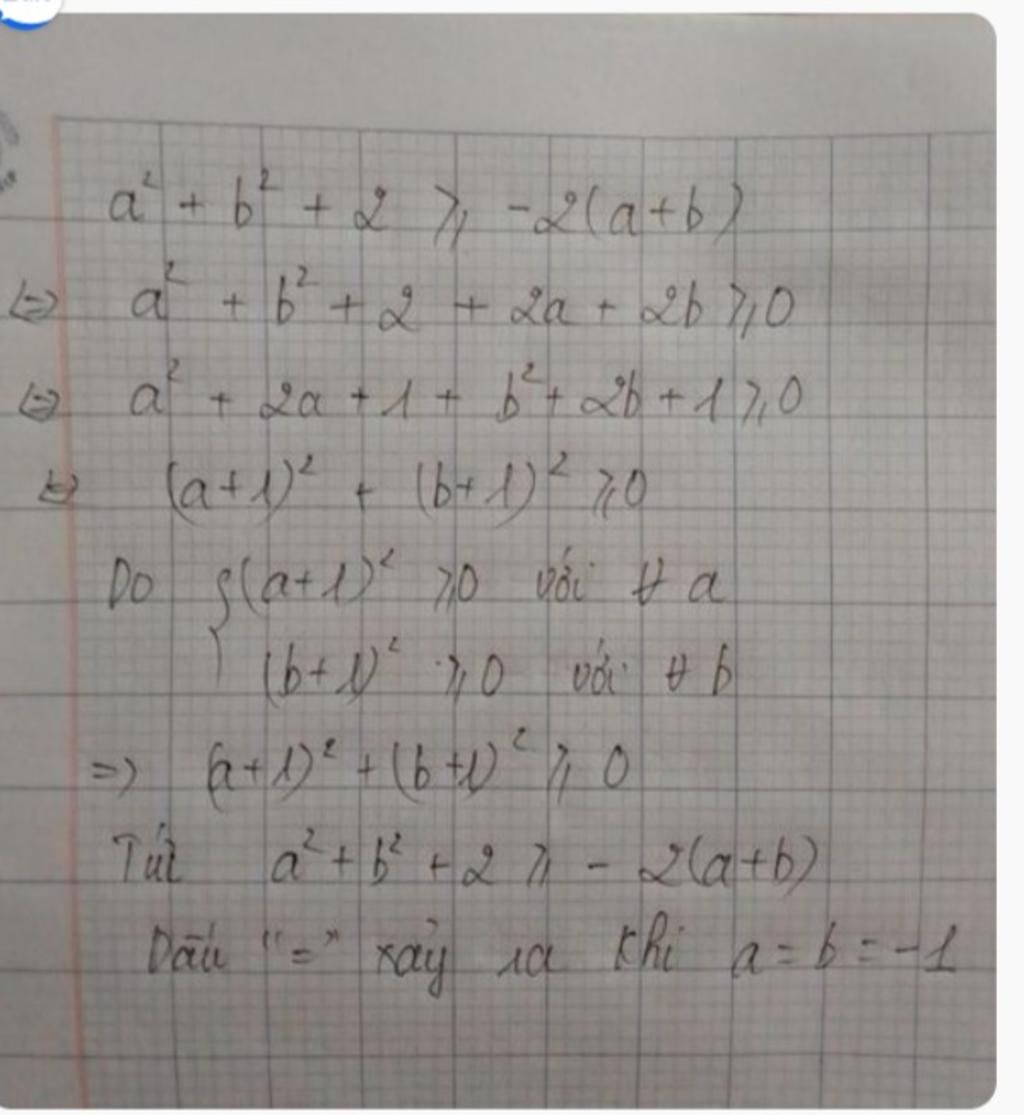 a² + b² + 2 ⩾ -2(a+b)
⇔ a² + b² + 2 + 2a + 2b ⩾ 0
⇔ a² + 2a + 1 + b² + 2b + 1 ⩾ 0
⇔ (a+1)² + (b+1)² ⩾ 0
Do { (a+1)² ⩾ 0 với ∀ a
(b+1)² ⩾ 0 với ∀ b
=> (a+1)² + (b+1)² ⩾ 0
Tức a² + b² + 2 ⩾ - 2(a+b)
Dấu "=" xảy ra khi a = b = -1